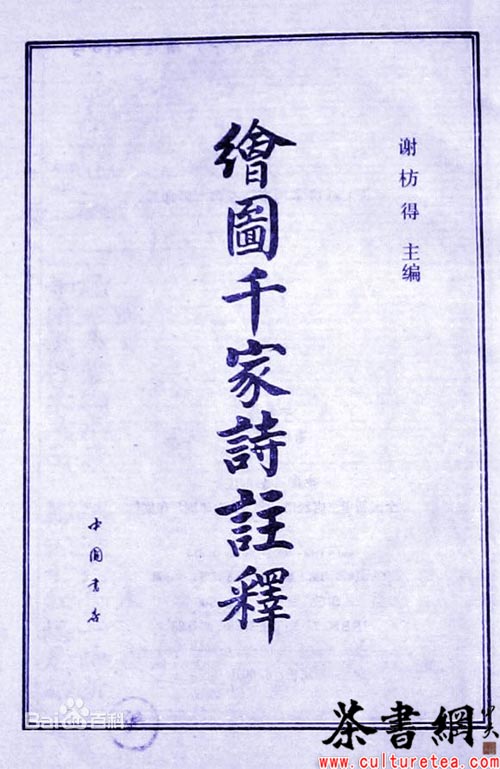 谢枋得 主编
繪圖千家詩註釋
中国书店
Bai百科
茶書網
www.culturetea.com